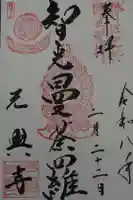 奉拝
令和八年
二月二十二日
智光曼荼羅
元興寺